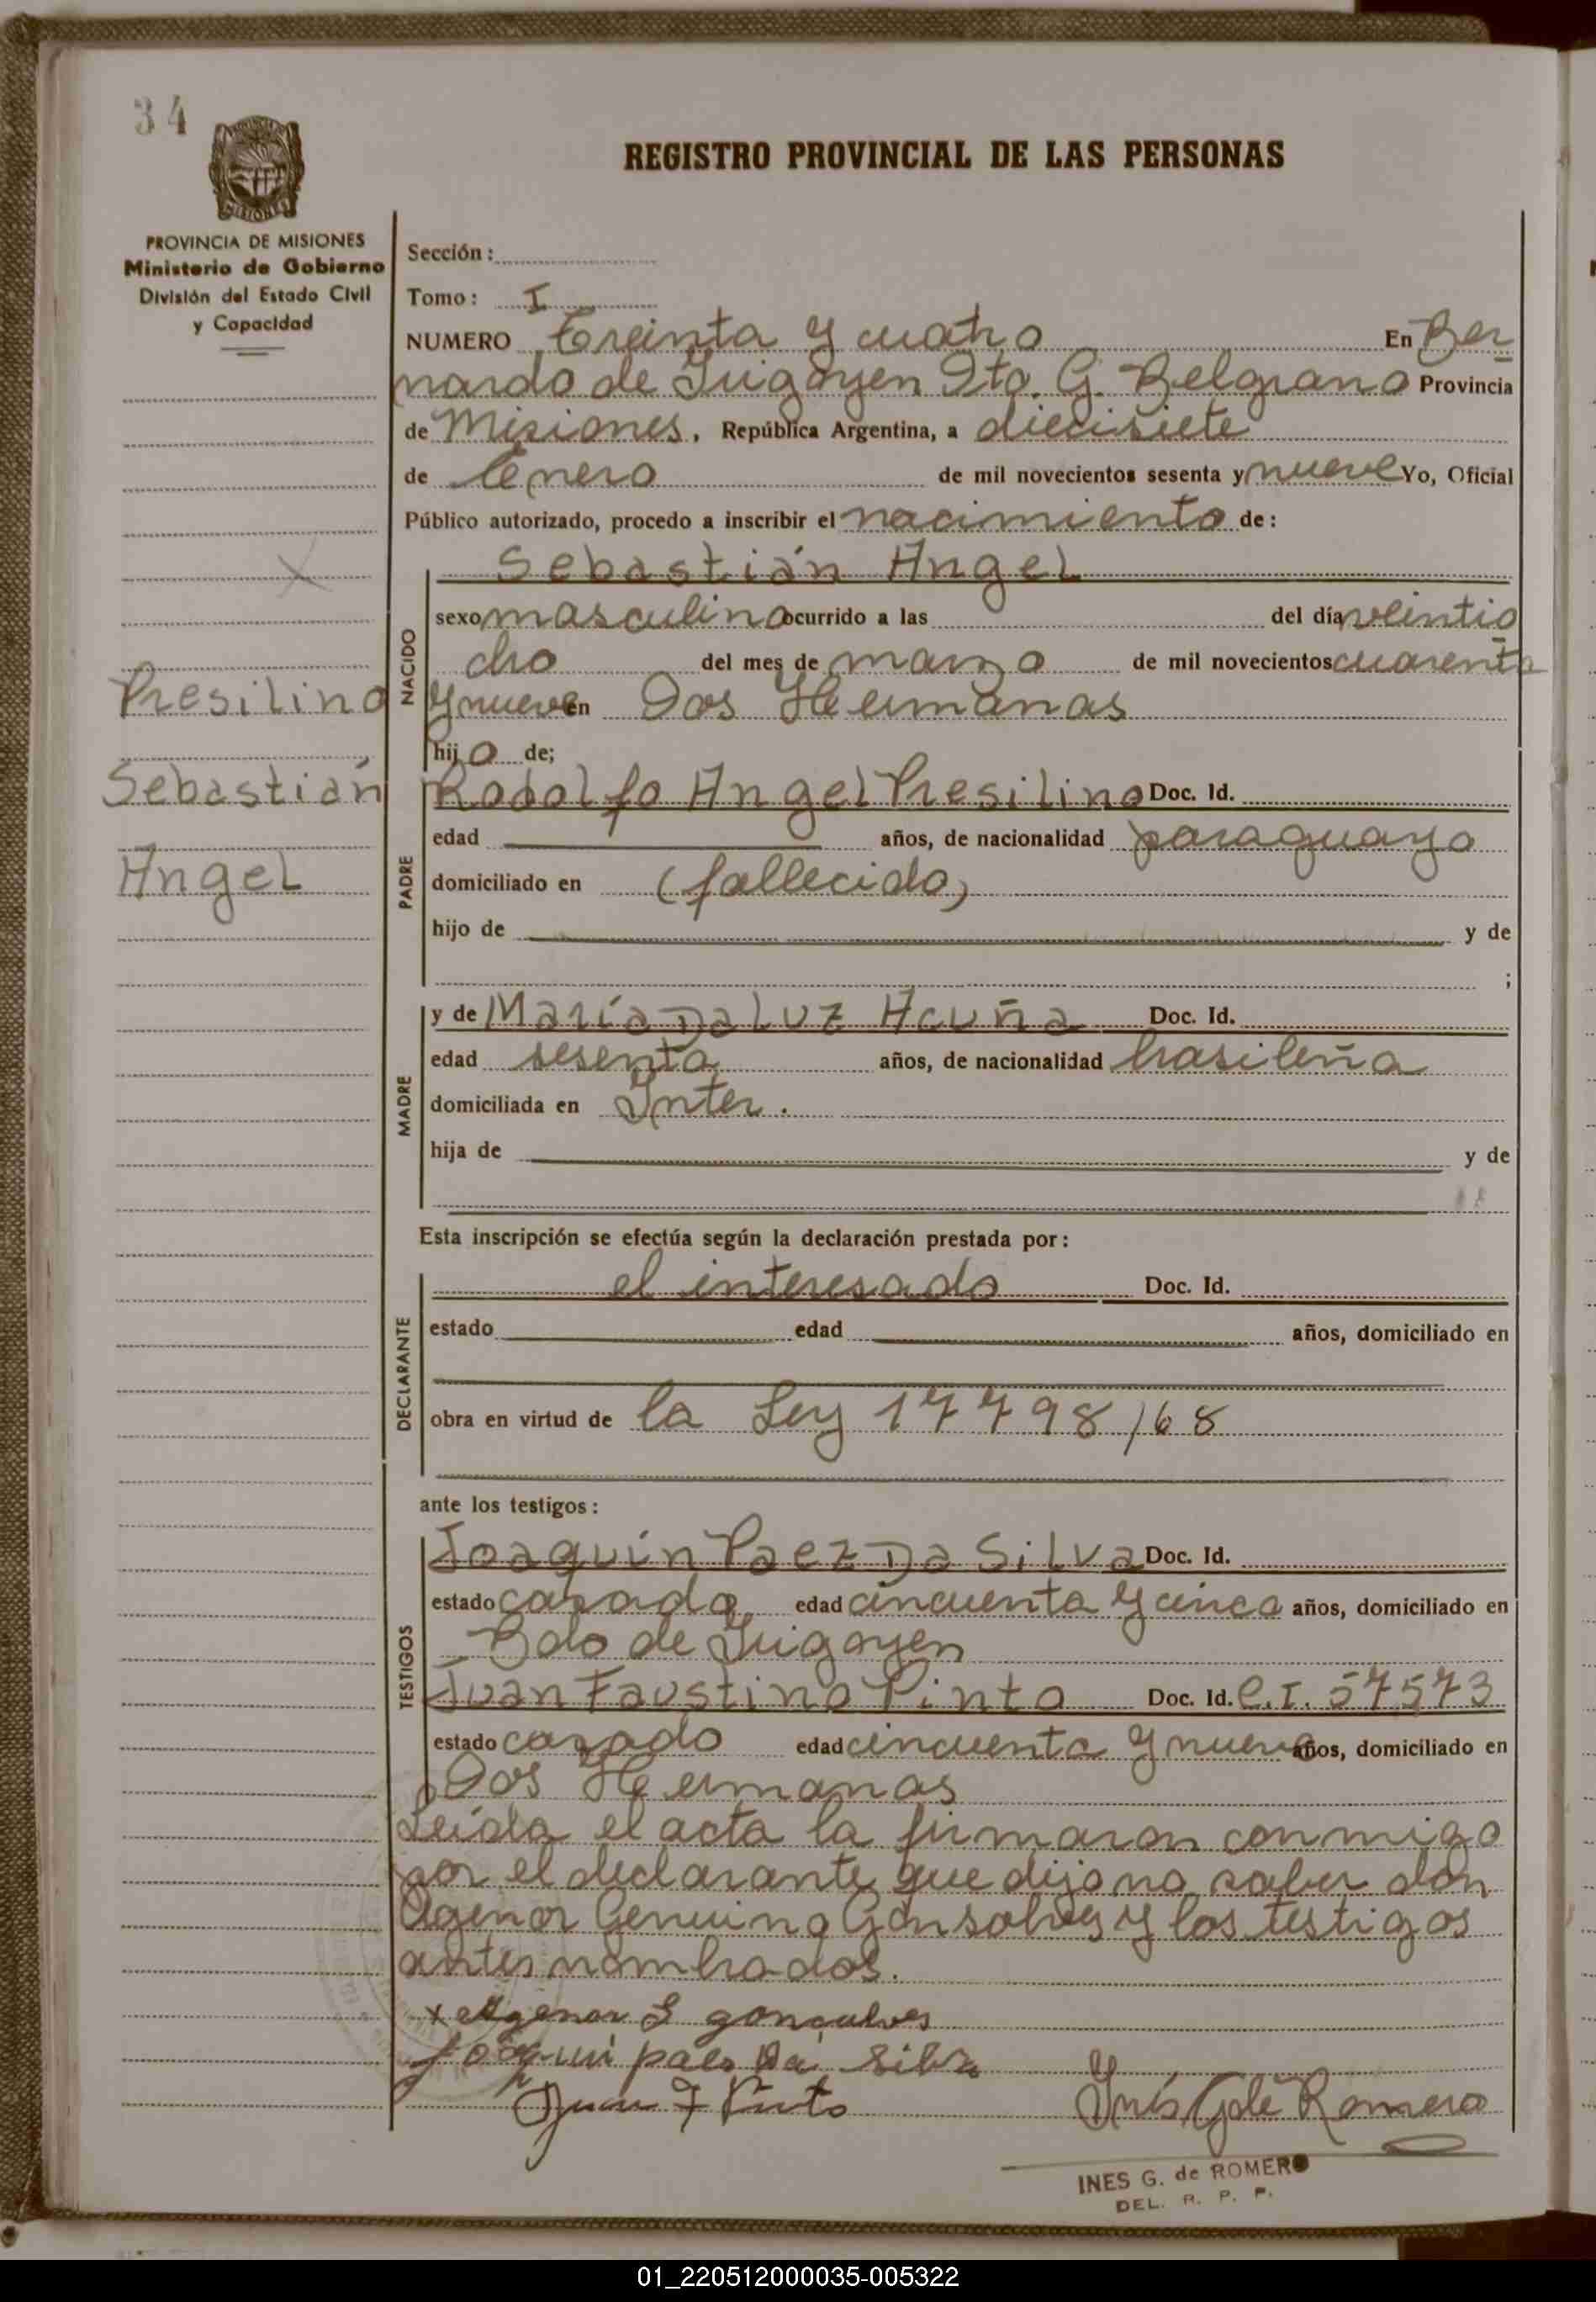 34
REGISTRO PROVINCIAL DE LAS PERSONAS
MISIONES
PROVINCIA DE MISIONES
Ministerio de Gobierno
División del Estado Civil
y Capacidad
Sección:
Tomo: I
NUMERO Treinta y cuatro En Ber
nardo de Irigoyen Dto. G. Belgrano Provincia
de Misiones, República Argentina, a diecisiete
de Enero de mil novecientos sesenta y nueve Yo, Oficial
Público autorizado, procedo a inscribir el nacimiento de:
Sebastián Angel
NACIDO
sexo masculino ocurrido a las del día veintio
cho del mes de marzo de mil novecientos cuarenta
y nueve en Dos Hermanas
hijo de;
Presilino
Sebastián
Angel
PADRE
Rodolfo Angel Presilino Doc. Id.
edad años, de nacionalidad paraguayo
domiciliado en (fallecido)
hijo de y de
;
MADRE
y de María Da Luz Acuña Doc. Id.
edad sesenta años, de nacionalidad brasileña
domiciliada en Inter.
hija de y de
Esta inscripción se efectúa según la declaración prestada por:
DECLARANTE
el interesado Doc. Id.
estado edad años, domiciliado en
obra en virtud de la Ley 17798/68
ante los testigos:
TESTIGOS
Joaquín Paez Da Silva Doc. Id.
estado casado edad cincuenta y cinco años, domiciliado en
Bdo de Irigoyen
Juan Faustino Pinto Doc. Id. C.I. 57573
estado casado edad cincuenta y nueve años, domiciliado en
Dos Hermanas
Leída el acta la firmaron conmigo
por el declarante que dijo no saber don
Agenor Genuino Gonsalves y los testigos
antes nombrados.
x Agenor G gonçalves
Joaquin paes Da Silva
Juan F Pinto
Inés G de Romero
INES G. de ROMERO
DEL. R. P. P.
01_220512000035-005322